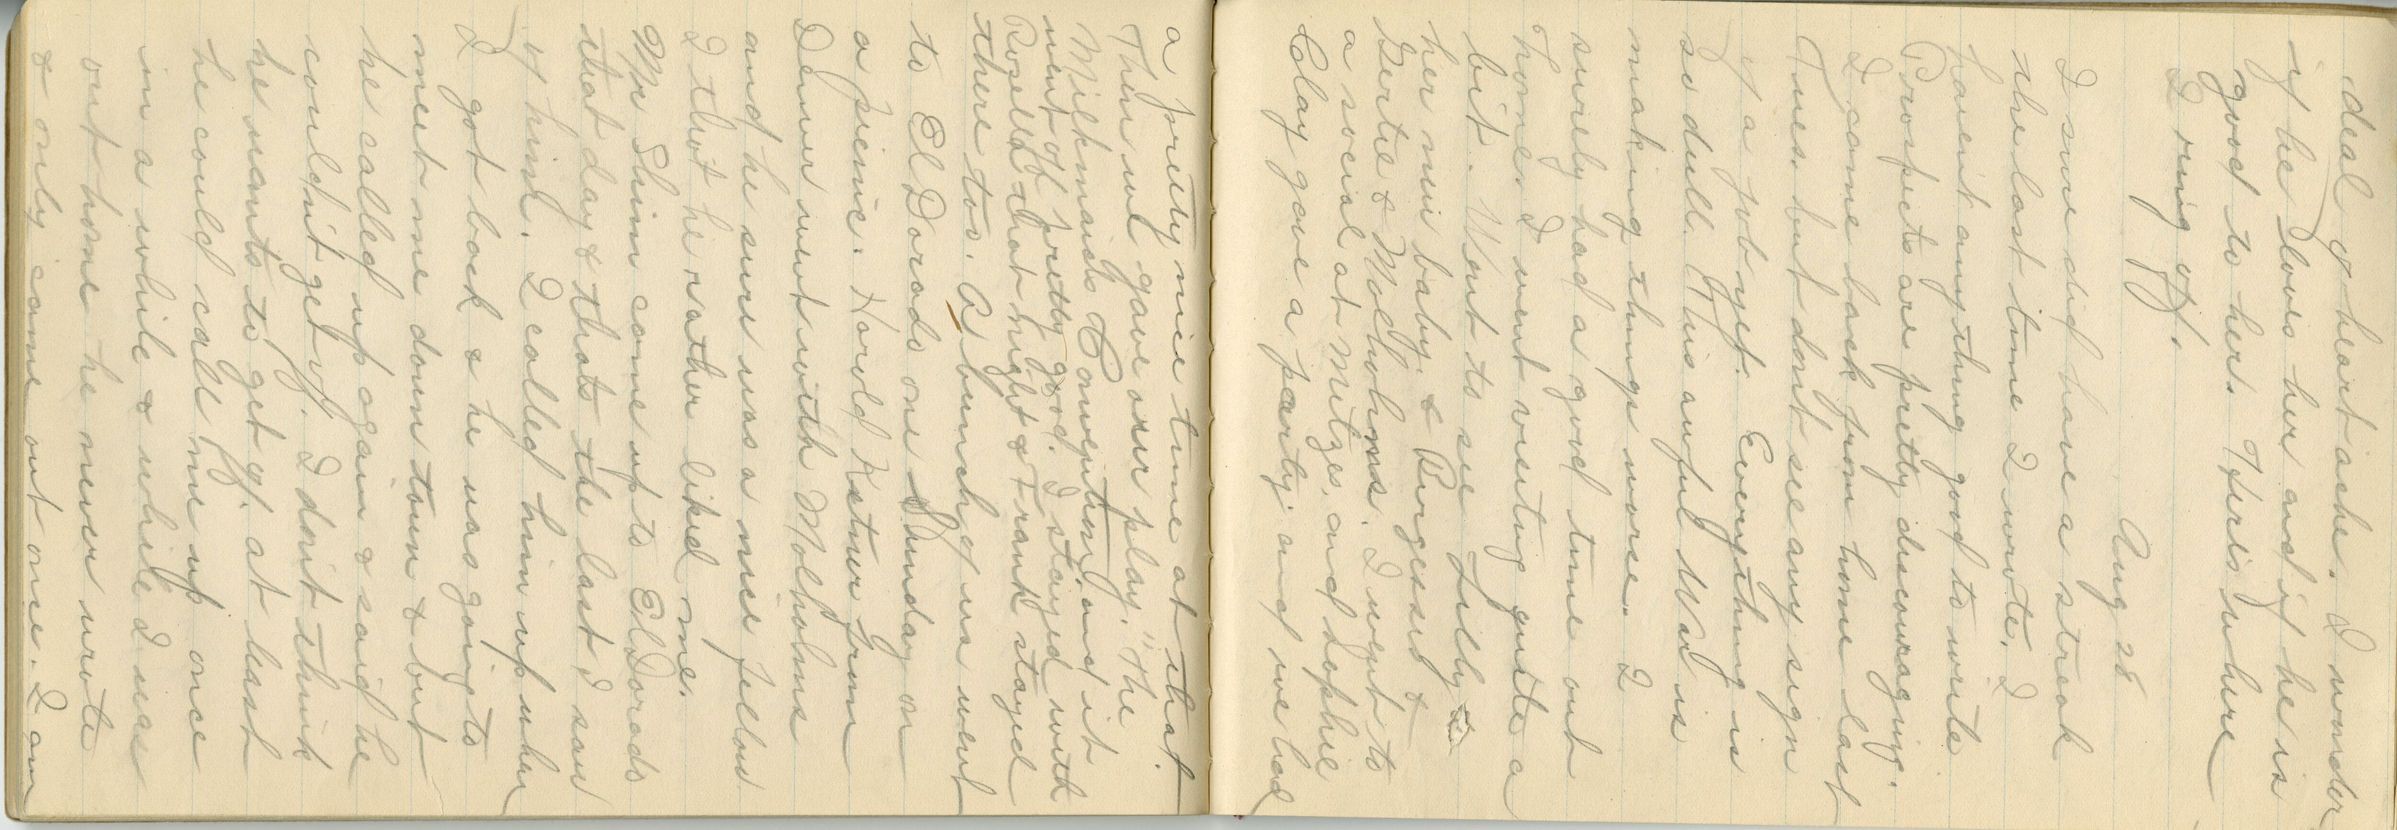 deal of heartache. I wonder
if he loves her and if he is
good to her. Here's where
I ring off.
Aug 28
I sure did have a streak
the last time I wrote. I
havent anything good to write
Prospects are pretty discouraging.
I came back from home last
Tues. but dont see any sign
of a job yet. Everything is
so dull. This awful War is
making things worse. I
surely had a good time out
home. I went visiting quite a
bit. Went to see Lilly &
her new baby. & Burgesses &
Gertie & Molholms. I went to
a social at Metzes, and Sophie
Clay gave a party and we had
a pretty nice time at that.
Then we gave our play, "The
Milkmaids Convention," and it
went off pretty good. I stayed with
Rozella that night & Frank stayed
there too. A bunch of us went
to El Dorado one Sunday on
a picnic. Harold Ketner from
Denver went with Molholms
and he sure was a nice fellow
Mr Shim come up to El Dorado
that day & thats the last I saw
I thot he rather liked me.
of him. I called him up when
I got back & he was going to
meet me down town & but
he called up again & said he
couldn't get off. I dont think
he wants to get off, at least
he could call me up once
in a while & while I was
out home he never wrote
& only came out once. I am